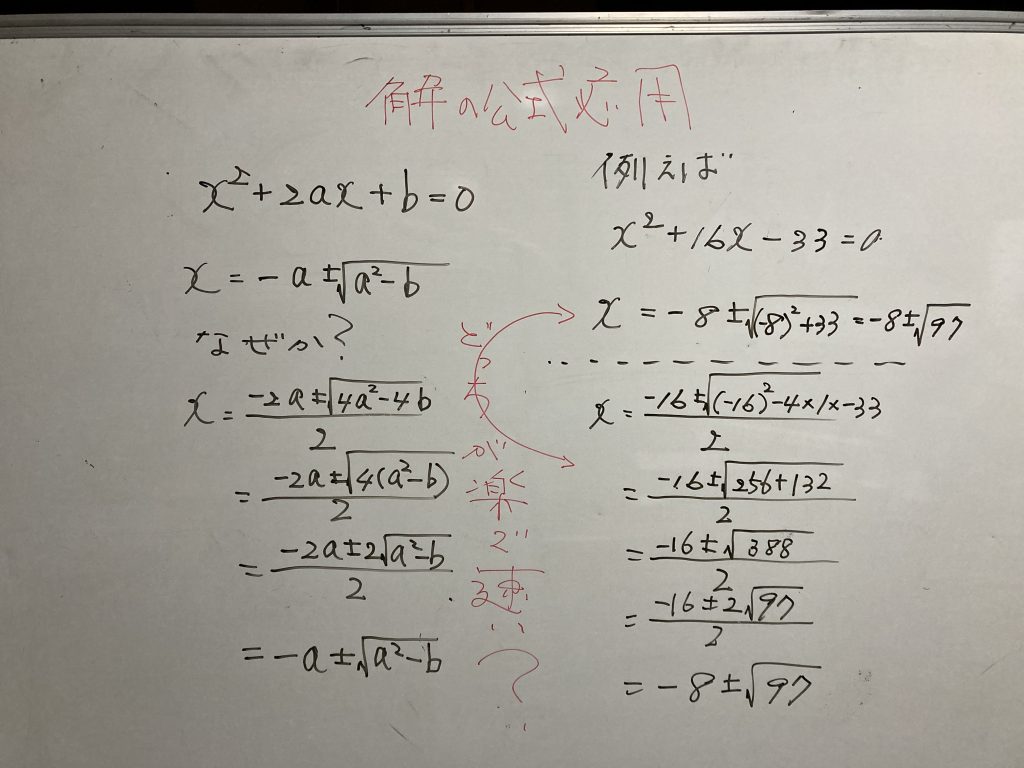 解の公式応用
x²+2ax+b=0
x=-a±√(a²-b)
なぜか?
x=(-2a±√(4a²-4b))/2
=(-2a±√(4(a²-b)))/2
=(-2a±2√(a²-b))/2
=-a±√(a²-b)
どっちが楽で速い?
例えば
x²+16x-33=0
x=-8±√((-8)²+33)=-8±√97
x=(-16±√((-16)²-4×1×-33))/2
=(-16±√(256+132))/2
=(-16±√388)/2
=(-16±2√97)/2
=-8±√97